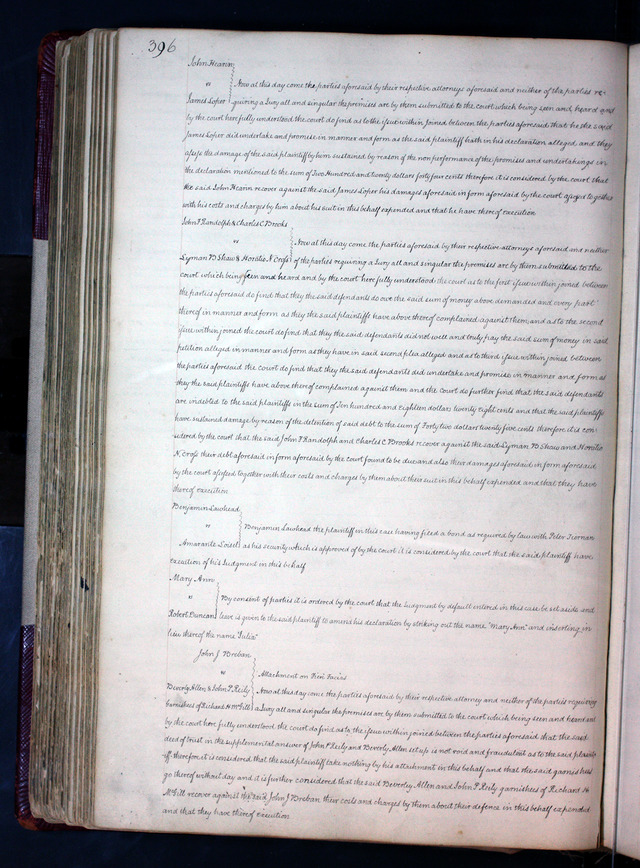 396
John Hearin
vs
Now at this day come the parties aforesaid by their respective attorneys aforesaid and neither of the parties re-
James Loper quiring a Jury all and singular the premises are by them submitted to the court which being seen and heard and
by the court here fully understood the court do find as to the issue within joined between the parties aforesaid that he the said
James Loper did undertake and promise in manner and form as the said plaintiff hath in his declaration alleged, and they
assess the damage of the said plaintiff by him sustained by reason of the non performance of the promises and undertakings in
the declaration mentioned to the sum of Two Hundred and twenty dollars forty four cents therefore it is considered by the court that
the said John Hearin recover against the said James Loper his damages aforesaid in form aforesaid by the court assessed together
with his costs and charges by him about his suit in this behalf expended and that he have thereof execution
John F Randolph & Charles C Brooks
vs
Now at this day come the parties aforesaid by their respective attorneys aforesaid and neither
Lyman B Shaw & Horatio N Cross of the parties requiring a Jury all and singular the premises are by them submitted to the
court which being seen and heard and by the court here fully understood the court as to the first issue within joined between
the parties aforesaid do find that they the said defendants do owe the said sum of money above demanded and every part
thereof in manner and form as they the said plaintiffs have above thereof complained against them, and as to the second
issue within joined the court do find that they the said defendants did not well and truly pay the said sum of money in said
petition alleged in manner and form as they have in said second plea alleged and as to third issue within joined between
the parties aforesaid the court do find that they the said defendants did undertake and promise in manner and form as
they the said plaintiffs have above thereof complained against them and the Court do further find that the said defendants
are indebted to the said plaintiffs in the sum of Ten hundred and eighteen dollars twenty eight cents and that the said plaintiffs
have sustained damage by reason of the detention of said debt to the sum of Forty two dollars twenty five cents therefore it is con-
sidered by the court that the said John F Randolph and Charles C Brooks recover against the said Lyman B Shaw and Horatio
N. Cross their debt aforesaid in form aforesaid by the court found to be due and also their damages aforesaid in form aforesaid
by the court assessed together with their costs and charges by them about their suit in this behalf expended and that they have
thereof execution
Benjamin Lawhead
vs
Benjamin Lawhead the plaintiff in this case having filed a bond as required by law with Peter Tiernan
Amarante Loisel as his security which is approved of by the court it is considered by the court that the said plaintiff have
execution of his Judgment in this behalf
Mary Ann
vs
By consent of parties it is ordered by the court that the Judgment by default entered in this case be set aside and
Robert Duncan leave is given to the said plaintiff to amend his declaration by striking out the name "Mary Ann" and inserting in
lieu thereof the name "Julia"
John J Breban
vs
Attachment on Fieri Facias
Beverly Allen & John P. Reily Now at this day come the parties aforesaid by their respective attorney and neither of the parties requiring
Garnishees of Richard H McGill a Jury all and singular the premises are by them submitted to the court which being seen and heard and
by the court here fully understood the court do find as to the issue within joined between the parties aforesaid that the said
deed of trust in the supplemental answer of John P Reily and Beverly Allen set up is not void and fraudulent as to the said plaint-
iff therefore it is considered that the said plaintiff take nothing by his attachment in this behalf and that the said garnishees
go thereof without day and it is further considered that the said Beverley Allen and John P. Reily garnishees of Richard H
McGill recover against the said John J Breban their costs and charges by them about their defence in this behalf expended
and that they have thereof execution